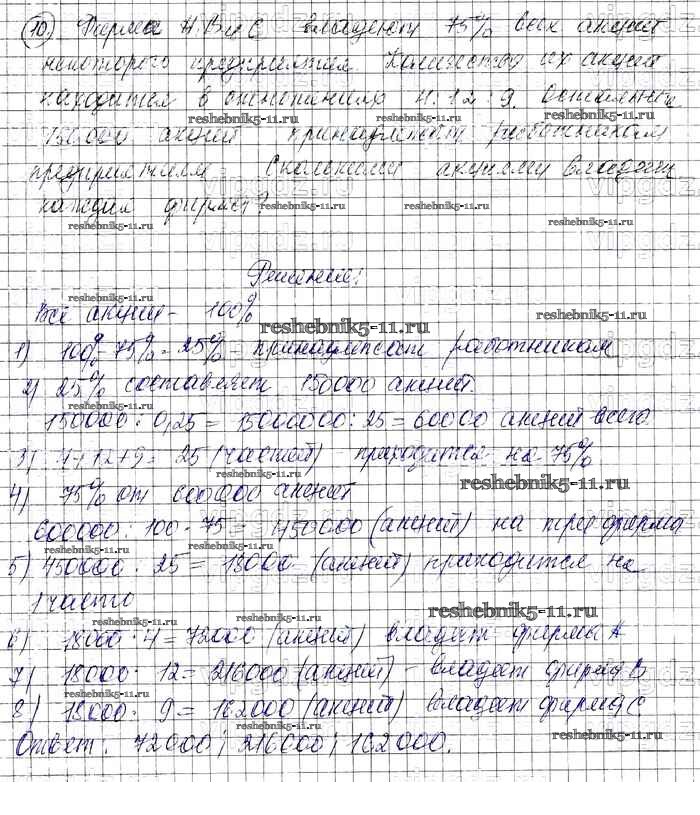 10) Фирмы А, В и С владеют 75% всех акций
некоторого предприятия. Количества их акций
находятся в отношениях 4:12:9. Остальные
150.000 акций принадлежат работникам
предприятия. Сколькими акциями владеет
каждая фирма?
Решение:
Все акции - 100%
1) 100% - 75% = 25% - принадлежат работникам
2) 25% составляет 150000 акций.
150000 : 0,25 = 15000000 : 25 = 600000 акций всего
3) 4+12+9 = 25 (частей) - приходится на 75%
4) 75% от 600000 акций
600000 : 100 · 75 = 450000 (акций) на три фирмы
5) 450000 : 25 = 18000 (акций) приходится на
1 часть
6) 18000 · 4 = 72000 (акций) владеет фирмы А
7) 18000 · 12 = 216000 (акций) - владеет фирма В
8) 18000 · 9 = 162000 (акций) владеет фирма С
Ответ: 72000; 216000; 162000.
reshebnik5-11.ru
vipgdz.ru